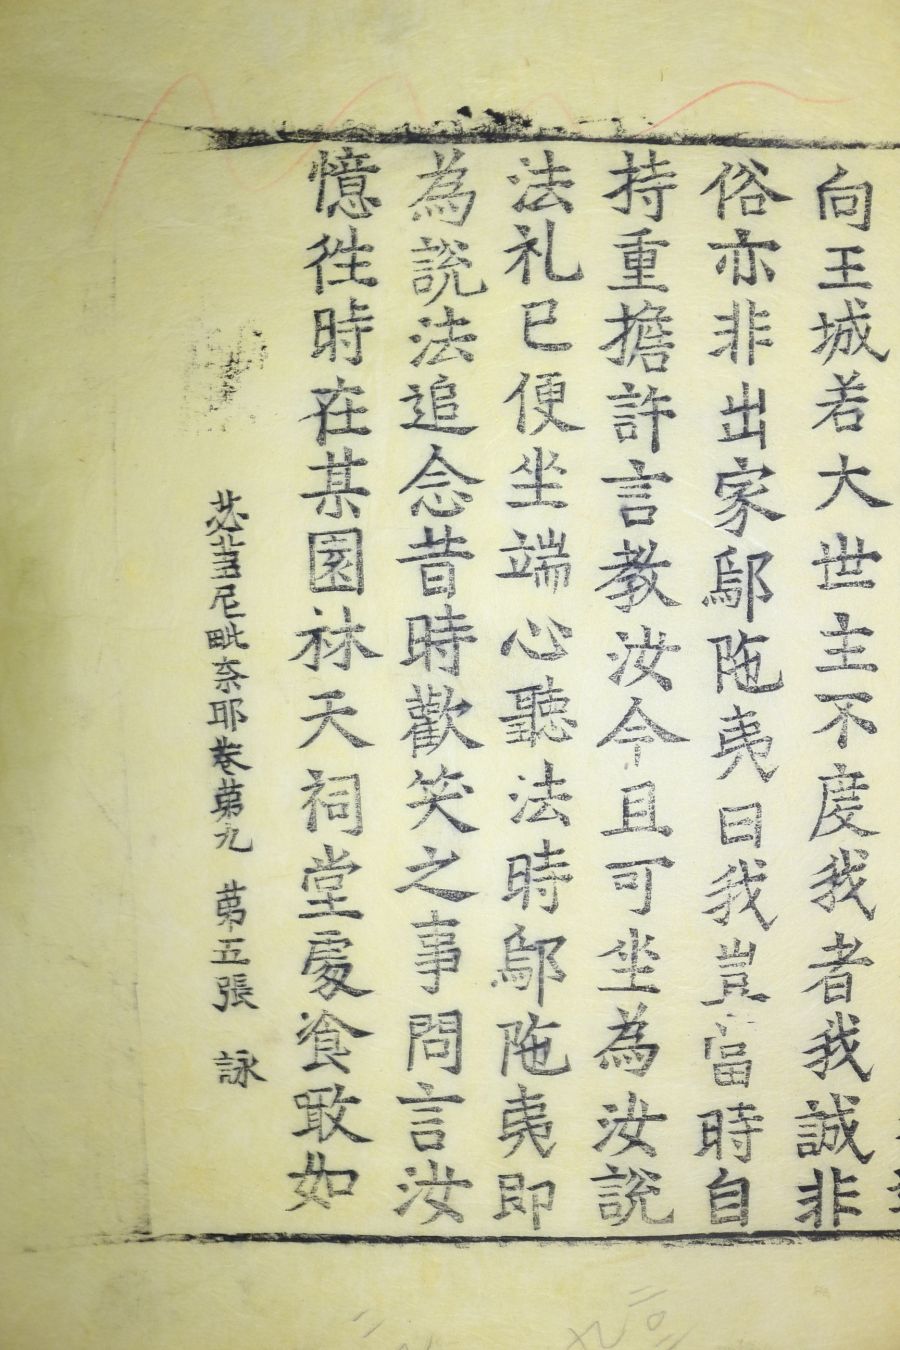 向王城若大世主不度我者我誠非
俗亦非出家鄔陁夷曰我豈當時自
持重擔許言教汝今且可坐為汝說
法礼已便坐端心聽法時鄔陁夷即
為說法追念昔時歡笑之事問言汝
憶徃時在某園林天祠堂處飡噉如
苾蒭尼毗奈耶卷第九 第五張 詠